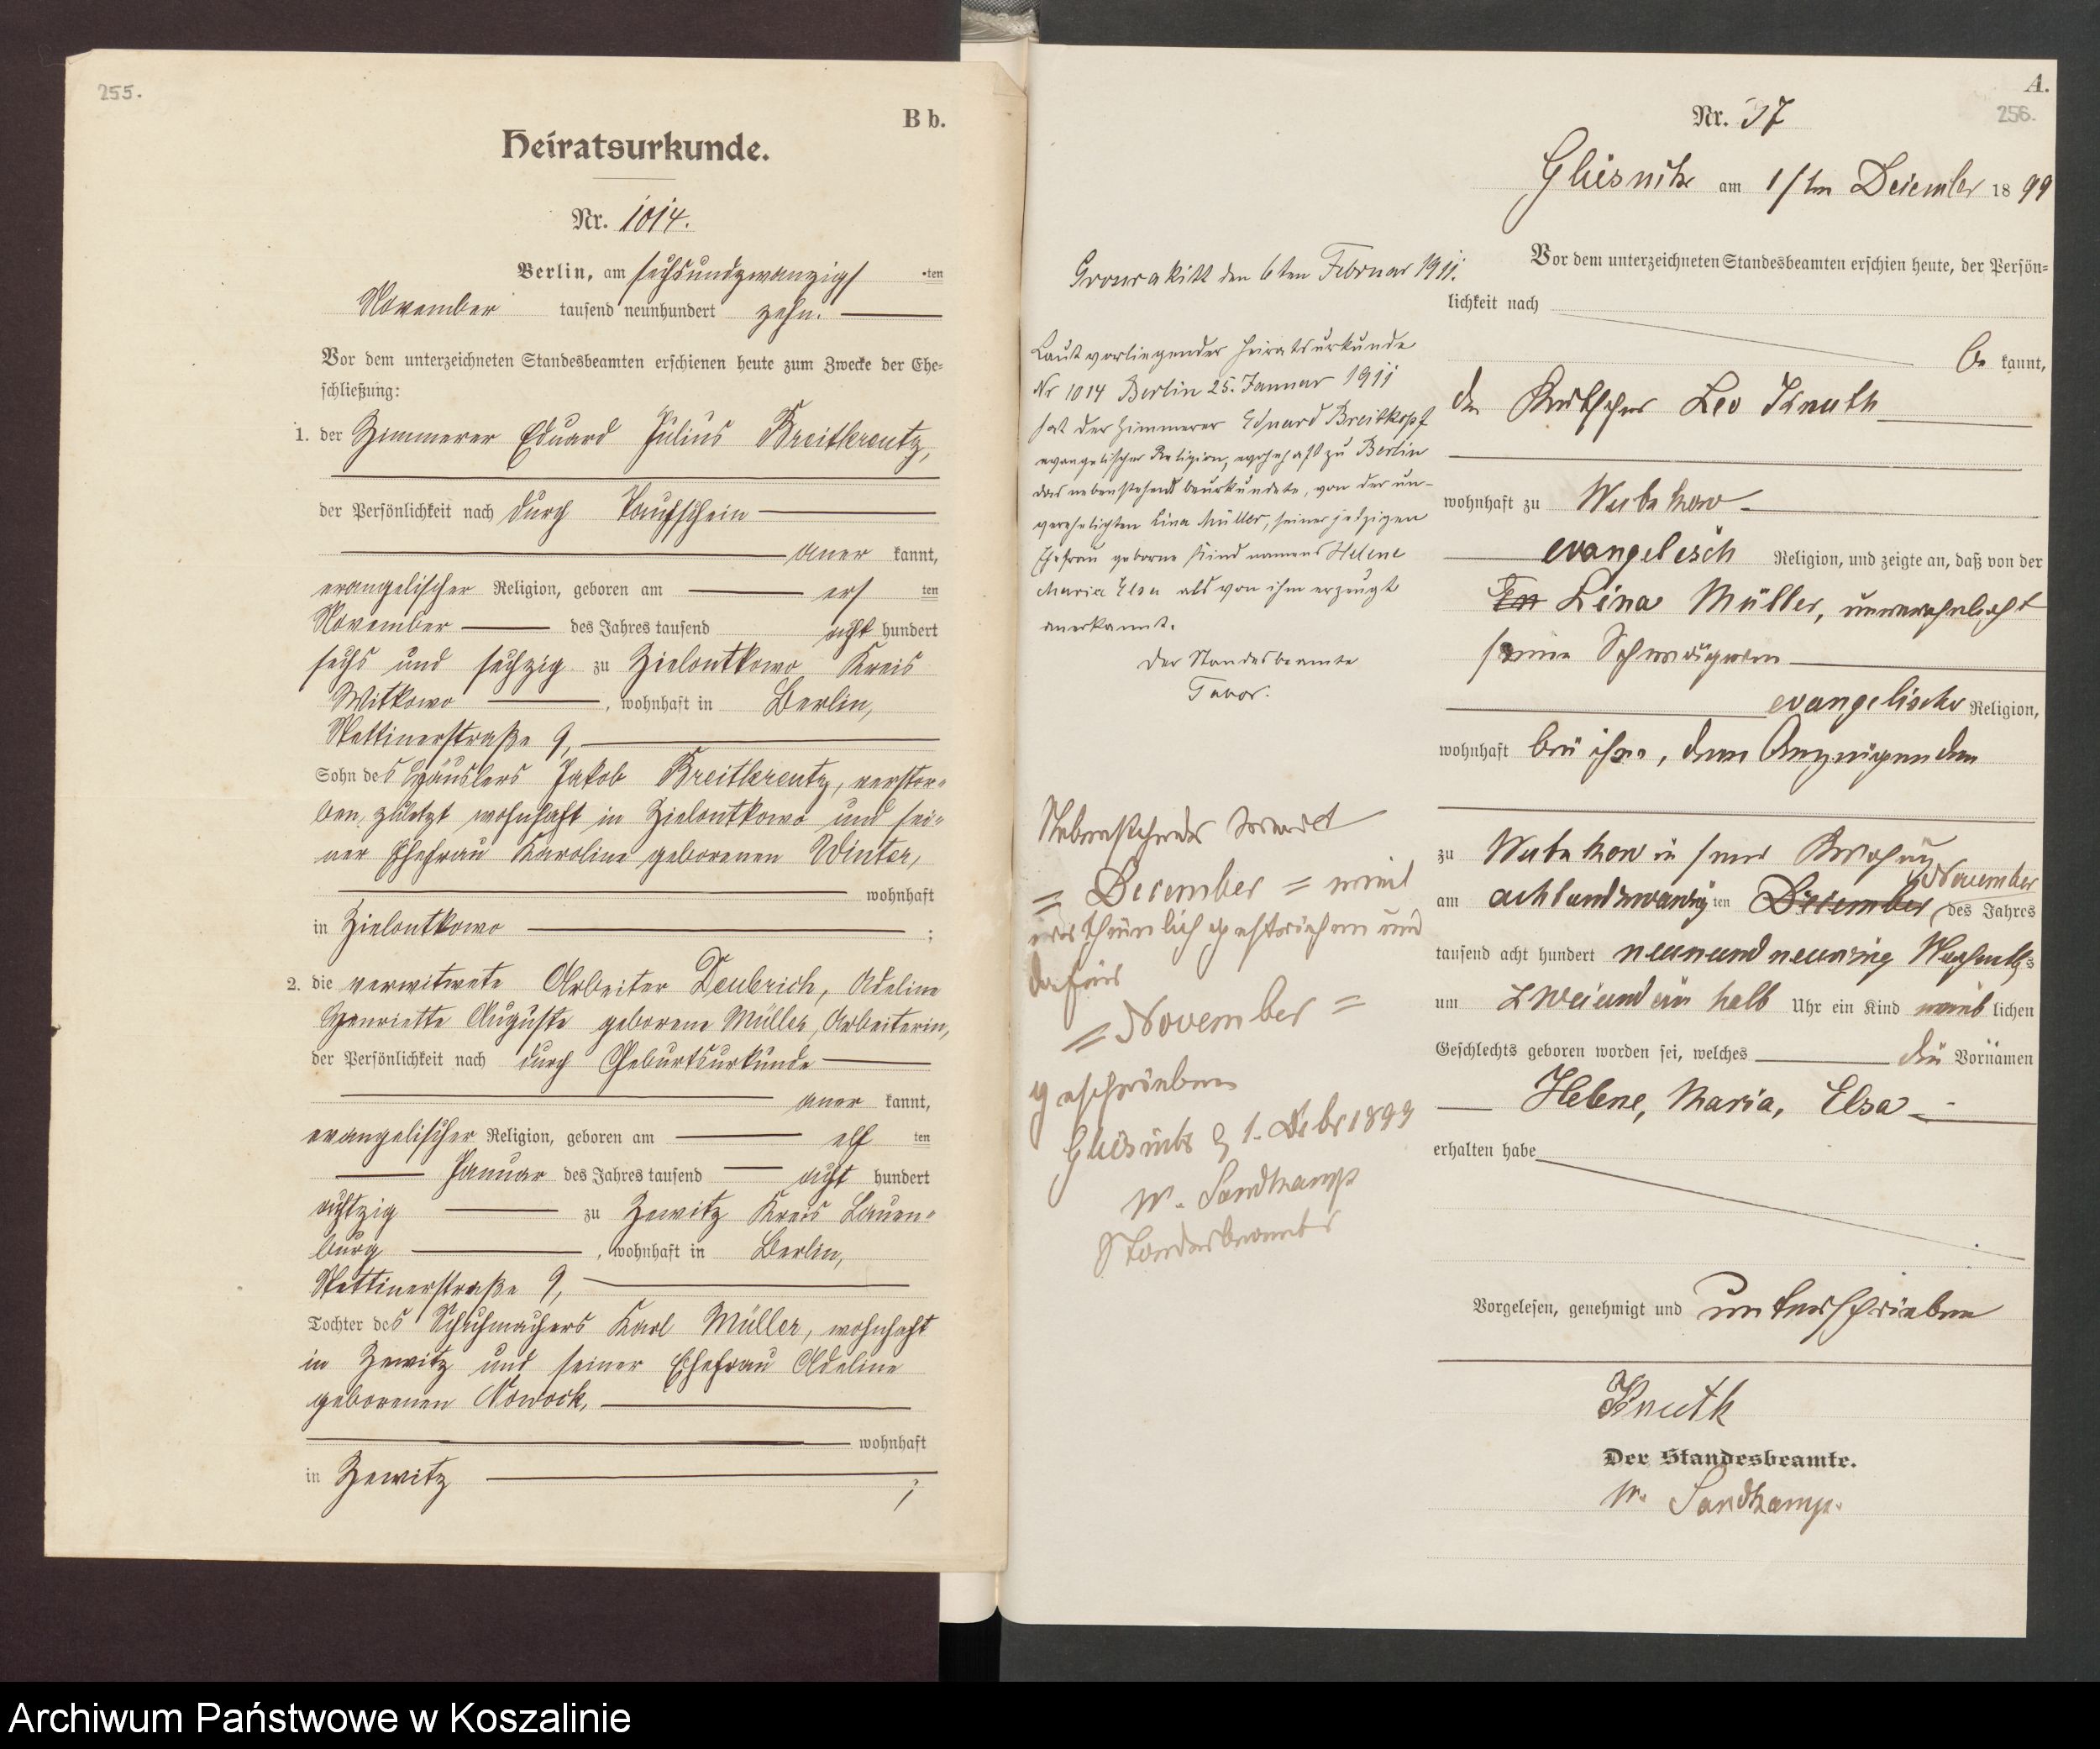 255.
B b.
Heiratsurkunde.
Nr. 1014.
Berlin, am sechsundzwanzigs ten
November tausend neunhundert zehn.
Vor dem unterzeichneten Standesbeamten erschienen heute zum Zwecke der Ehe-
schließung:
1. der Zimmerer Eduard Julius Breitkreutz,
der Persönlichkeit nach durch Taufschein
aner kannt,
evangelischer Religion, geboren am ers ten
November des Jahres tausend acht hundert
sechs und sechzig zu Zielontkowo Kreis
Witkowo, wohnhaft in Berlin,
Stettinerstraße 9,
Sohn des Häuslers Jakob Breitkreutz, verstor-
ben, zuletzt wohnhaft in Zielontkowo und sei-
ner Ehefrau Karoline geborenen Winter,
wohnhaft
in Zielontkowo ;
2. die verwitwete Arbeiter Deubrich, Adeline
Henriette Auguste geborene Müller, Arbeiterin,
der Persönlichkeit nach durch Geburtsurkunde
aner kannt,
evangelischer Religion, geboren am elf ten
Januar des Jahres tausend acht hundert
achtzig zu Zewitz Kreis Lauen-
burg, wohnhaft in Berlin,
Stettinerstraße 9,
Tochter des Schuhmachers Karl Müller, wohnhaft
in Zewitz und seiner Ehefrau Adeline
geborenen Nowock,
wohnhaft
in Zewitz ;
A.
256.
Nr. 37
Gliesnitz am 1ten December 1899
Vor dem unterzeichneten Standesbeamten erschien heute, der Persön-
lichkeit nach
be kannt,
der Kutscher Leo Knuth
wohnhaft zu
evangelisch Religion, und zeigte an, daß von der
Lina Müller, unverehelicht
seine Schwägerin
evangelischer Religion,
wohnhaft bei ihm, dem Anzeigenden
zu in seiner Wohnung
November
am achtundzwanzig ten December des Jahres
tausend acht hundert neunundneunzig Nachmittags
um zwei und ein halb Uhr ein Kind weib lichen
Geschlechts geboren worden sei, welches die Vornamen
Helene, Maria, Elsa
erhalten habe
Vorgelesen, genehmigt und unterschrieben
Knuth
Der Standesbeamte.
W. Sandkamp.
den 6ten Februar 1911.
Laut vorliegender Heiratsurkunde
Nr 1014 Berlin 25. Januar 1911
hat der Zimmerer Eduard Breitkopf
evangelischer Religion, wohnhaft zu Berlin
das nebenstehend beurkundete, von der un-
verehelichten Lina Müller, seiner jetzigen
Ehefrau geborne Kind namens Helene
Maria Elsa als von ihm erzeugt
anerkannt.
Der Standesbeamte
Tabor.
Nebenstehendes Wort
= December = wird
gestrichen und
dafür
= November =
geschrieben
Gliesnitz d 1. Dcbr 1899
W. Sandkamp
Standesbeamter
Archiwum Państwowe w Koszalinie